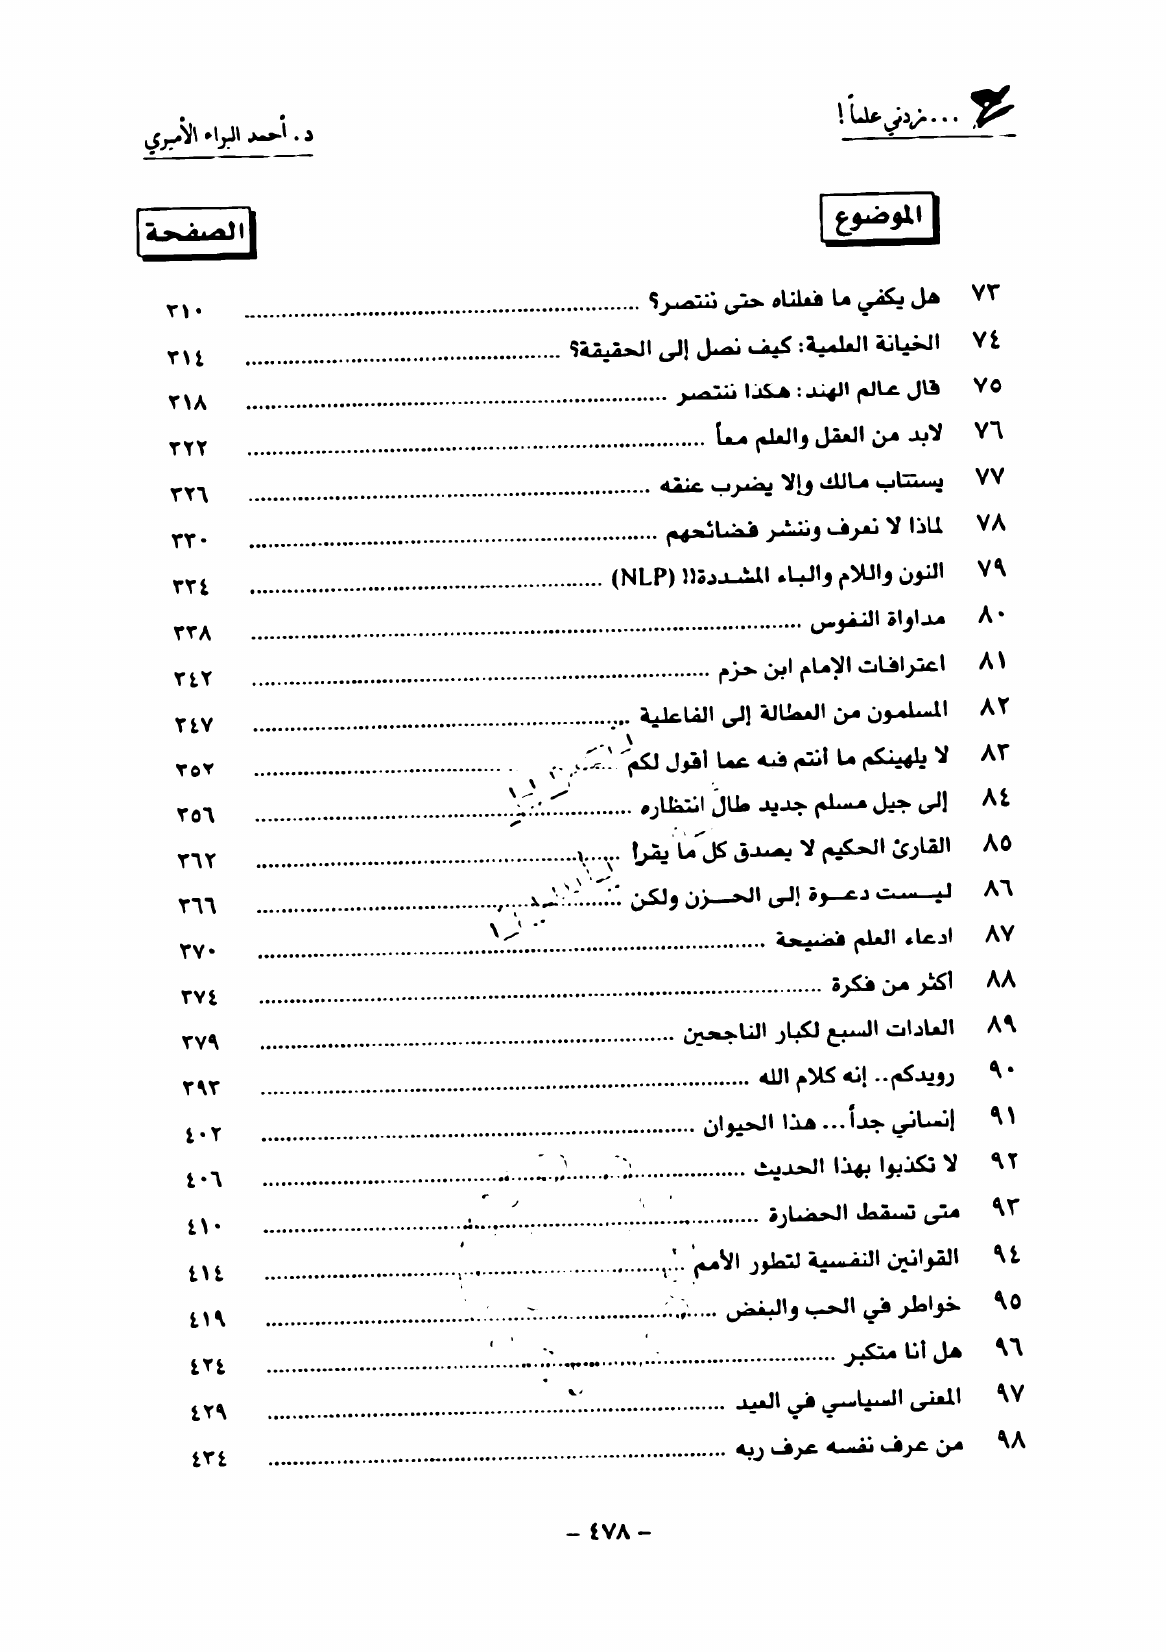 ...زدني علماً !
د. أحمد البراء الأميري
الموضوع
الصفحة
٧٣ هل يكفي ما فعلناه حتى ننتصر؟ ٣١٠
٧٤ الخيانة العلمية: كيف نصل إلى الحقيقة؟ ٣١٤
٧٥ قال عالم الهند: هكذا ننتصر ٣١٨
٧٦ لابد من العقل والعلم معاً ٣٢٢
٧٧ يستتاب مالك وإلا يضرب عنقه ٣٢٦
٧٨ لماذا لا نعرف وننشر فضائحهم ٣٣٠
٧٩ النون واللام والباء المشددة!! (NLP) ٣٣٤
٨٠ مداواة النفوس ٣٣٨
٨١ اعترافات الإمام ابن حزم ٣٤٢
٨٢ المسلمون من العطالة إلى الفاعلية ٣٤٧
٨٣ لا يلهينكم ما أنتم فيه عما أقول لكم ٣٥٢
٨٤ إلى جيل مسلم جديد طال انتظاره ٣٥٦
٨٥ القارئ الحكيم لا يصدق كل ما يقرأ ٣٦٢
٨٦ ليست دعوة إلى الحزن ولكن ٣٦٦
٨٧ ادعاء العلم فضيحة ٣٧٠
٨٨ أكثر من فكرة ٣٧٤
٨٩ العادات السبع لكبار الناجحين ٣٧٩
٩٠ رويدكم.. إنه كلام الله ٣٩٣
٩١ إنساني جداً... هذا الحيوان ٤٠٢
٩٢ لا تكذبوا بهذا الحديث ٤٠٦
٩٣ متى تسقط الحضارة ٤١٠
٩٤ القوانين النفسية لتطور الأمم ٤١٤
٩٥ خواطر في الحب والبغض ٤١٩
٩٦ هل أنا متكبر ٤٢٤
٩٧ المعنى السياسي في العيد ٤٢٩
٩٨ من عرف نفسه عرف ربه ٤٣٤
- ٤٧٨ -